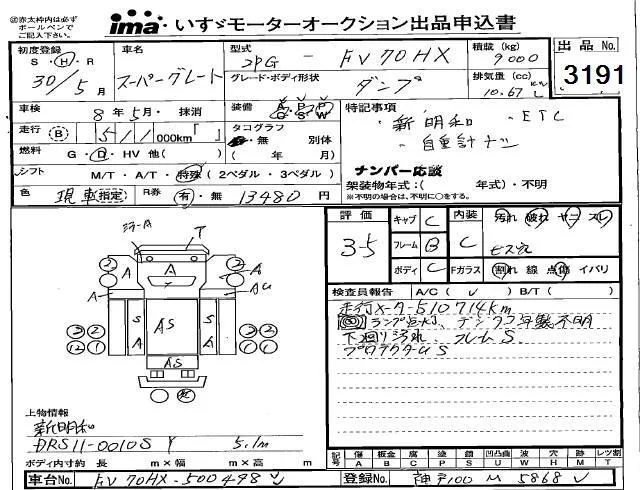 ※赤太枠内は必ず
ボールペンで
ご記入下さい。
ima・いすゞモーターオークション出品申込書
初度登録
S・H・R
30/5月
車名
スーパーグレート
型式
2PG - FV70HX
グレード・ボディ形状
ダンプ
積載 (kg)
9000
排気量 (cc)
10.67
出品 No.
3191
車検
8年5月・抹消
装備
特記事項
・新明和 ・ETC
・自重計ナシ
ナンバー応談
架装物年式:( 年式)・不明
※不明の場合は、不明に○をする。
走行
B
511 000km「 」
タコグラフ
有・無 別体
( 年 月)
燃料
G・D・HV 他( )
シフト
M/T・A/T・特殊(2ペダル・3ペダル)
色
現車(指定)
R券
有・無 13480 円
評価
3-5
キャブ C
フレーム B
ボディ C
内装
C
汚れ 破れ ヤニ スレ
ビス穴
Fガラス
割れ 線 点傷 イバリ
検査員報告 A/C( レ ) B/T( )
走行メーター510714km
ランプ点灯、デンタコ年製不明
下廻り汚れ、フレームS
プロテクターU S
ミラーA
T
A
A
A
A
A
A U
S
A
AS
S
A
AS
2
2
2
2
1
1
3
2
2
1
上物情報
新明和
DRS11-0010S
5.1m
ボディ内寸約 長 m×幅 m×高 m
記号
傷 板金 腐 塗 錆 凹凸曲 波 穴 跡 レツ割
A B C P S U W H M T
車台No. FV70HX-500498
登録No. 神戸100 M 5868